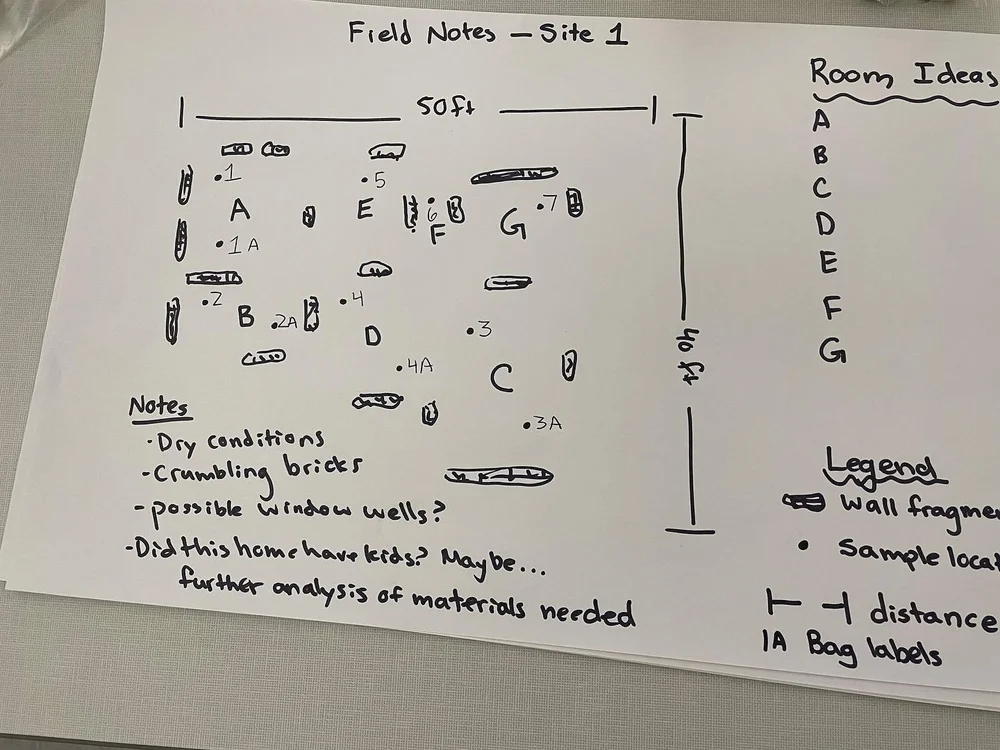 Field Notes – Site 1
50ft
40 ft
1
A
1A
5
E
6
F
G
7
2
B
2A
4
D
4A
3
C
3A
Notes
· Dry conditions
- Crumbling bricks
- possible window wells?
- Did this home have kids? Maybe...
further analysis of materials needed
Room Ideas
A
B
C
D
E
F
G
Legend
Wall fragme
• Sample locat
distance
1A Bag labels